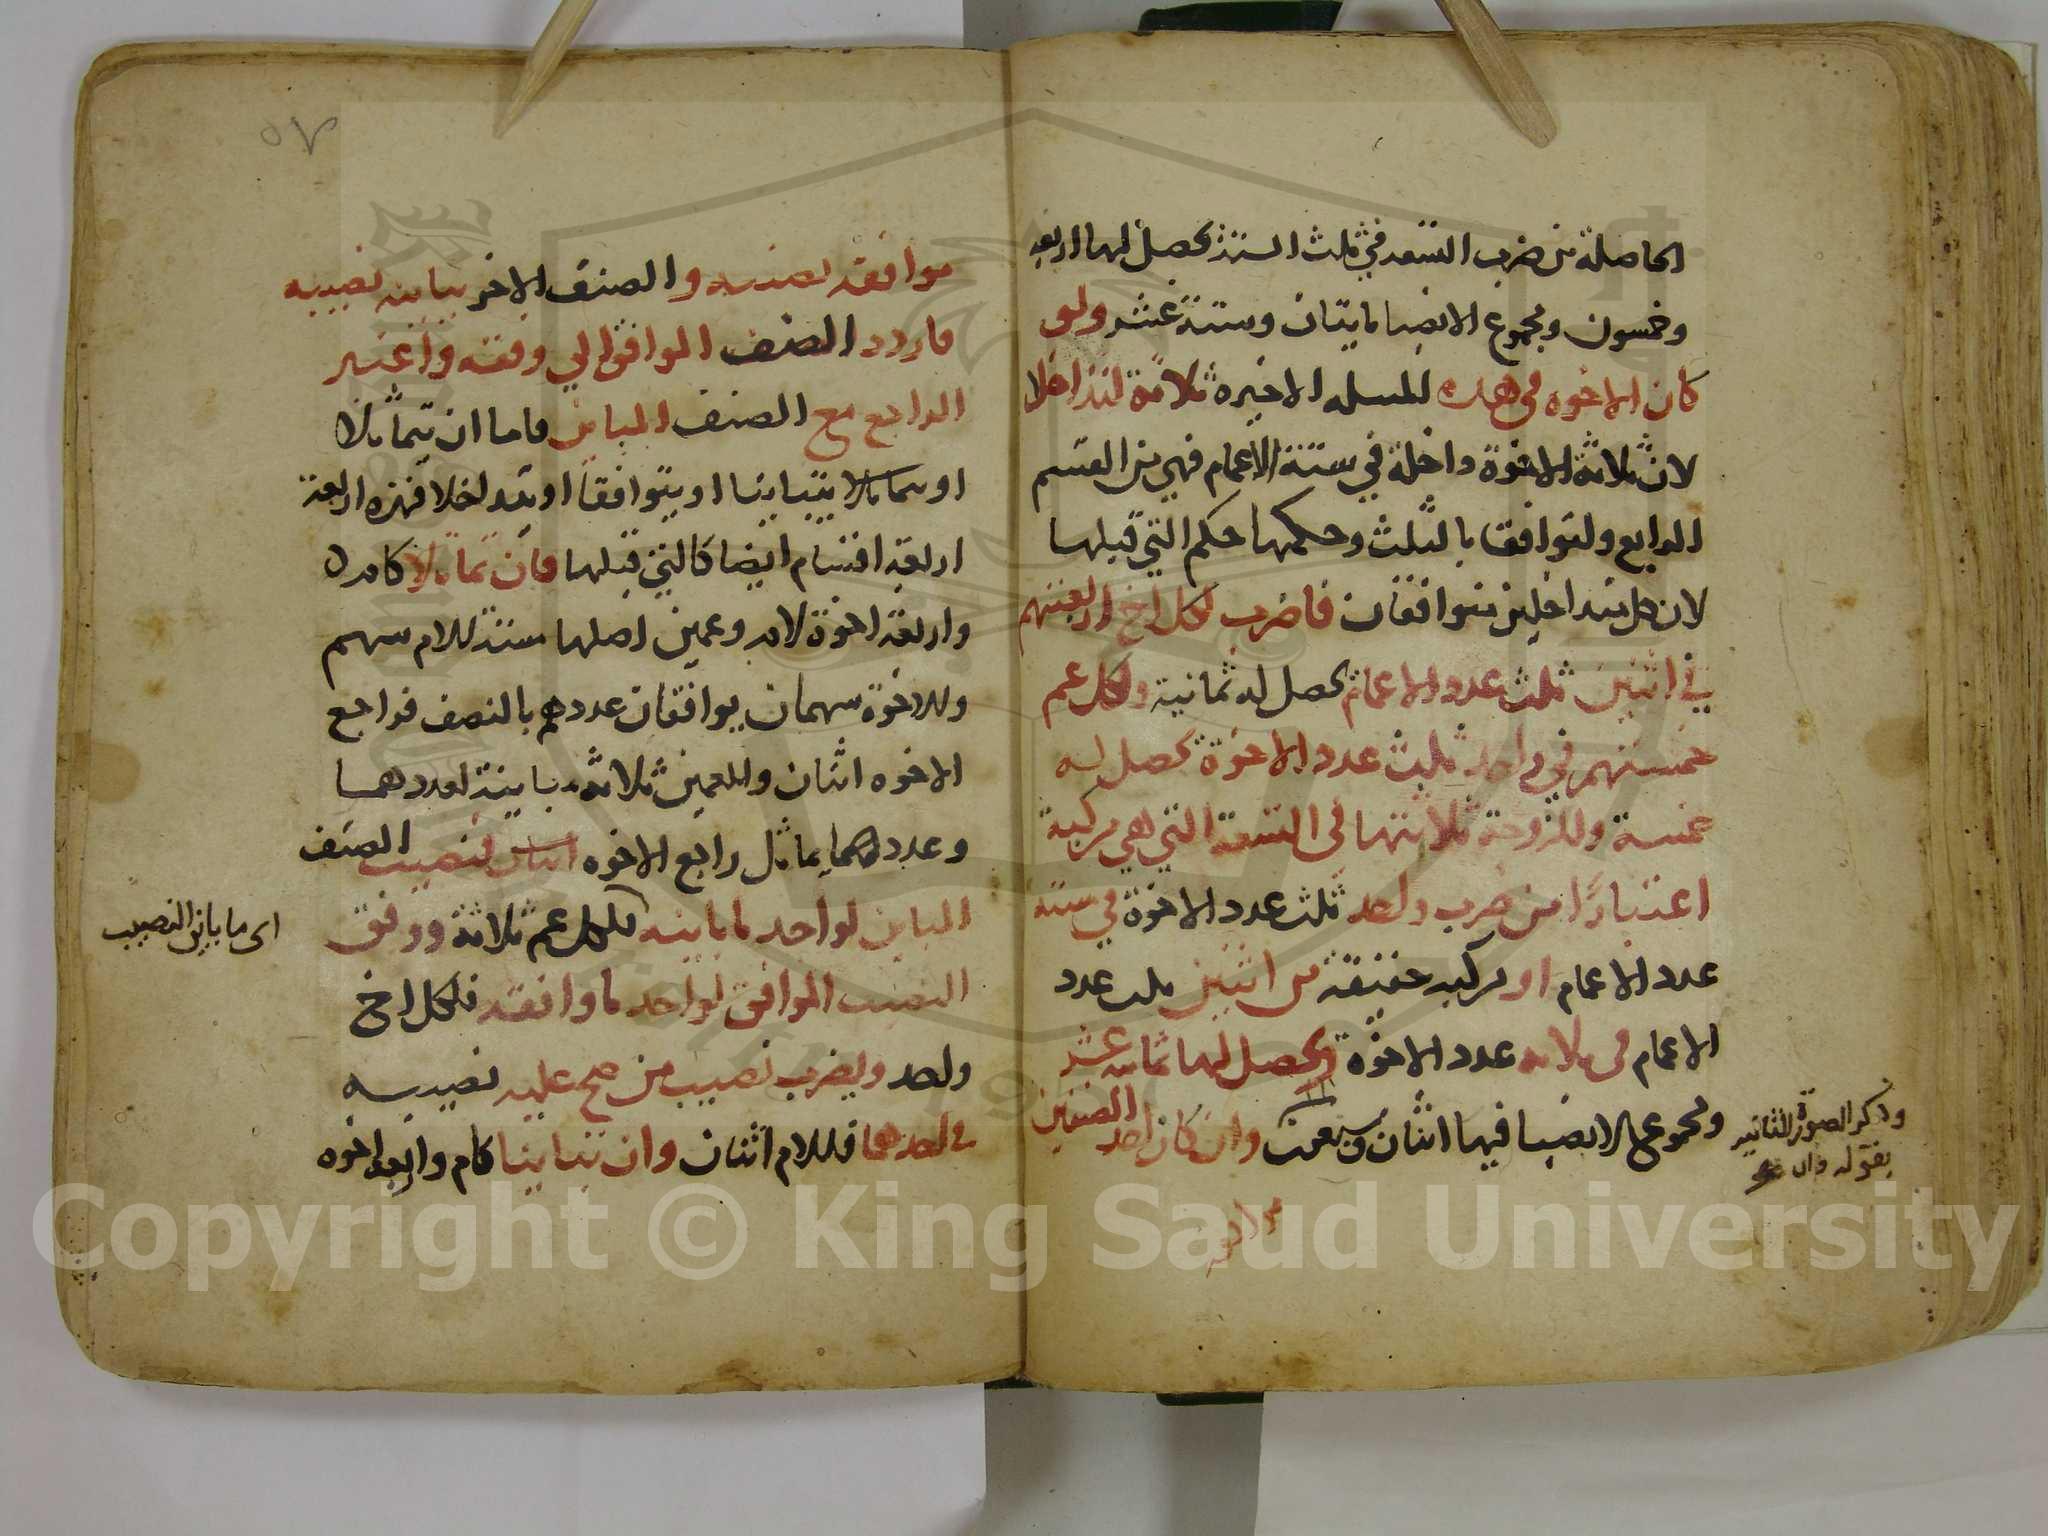 الحاصلة من ضرب التسعة في ثلث الستة يحصل لها اربعة
وخمسون ومجموع الانصبا مايتان وستة عشر ولو
كان الاخوة في هذه المسله الاخيرة ثلاثة لتداخلا
لان ثلاثة الاخوة داخلة في ستة الاعمام فهي من القسم
الرابع ولتوافقا بالثلث وحكمها حكم التي قبلها
لان كل متداخلين متوافقان فاضرب لكل اخ اربعتهم
في اثنين ثلث عدد الاعمام يحصل له ثمانية ولكل عم
خمستهم في واحد ثلث عدد الاخوة يحصل له
خمسة وللزوجة ثلاثتها في التسعة التي هي مركبة
اعتبارًا من ضرب واحد ثلث عدد الاخوة في ستة
عدد الاعمام او مركبه حقيقة من اثنين ثلث عدد
الاعمام في ثلاثه عدد الاخوة ويحصل لها ثمانيه عشر
ومجموع الانصبا فيها اثنان وسبعون وان كان احد الصنفين
وذكر الصورة الثانيه
بقوله وان
موافقه نصيبه والصنف الاخر يباينه نصيبه
فاردد الصنف الموافق الي وفقه واعتبر
الراجع مع الصنف المباين فاما ان يتماثلا
او يتباينا او يتوافقا او يتداخلا فهذه اربعة
اربعة اقسام ايضا كالتي قبلها فان تماثلا كام
واربعة اخوة لام وعمين اصلها ستة للام سهم
وللاخوة سهمان يوافقان عددهم بالنصف فراجع
الاخوه اثنان وللعمين ثلاثة مباينة لعددهما
وعددهما يماثل راجع الاخوه اثنان فنصيب الصنف
المباين لواحد ما باينه فلكل عم ثلاثة ووفق
اى ما باين النصيب
النصيب الموافق لواحد ما وافقه فلكل اخ
واحد ويضرب نصيب من صح عليه نصيبه
في احدهما فللام اثنان وان تباينا كام واربعه اخوه